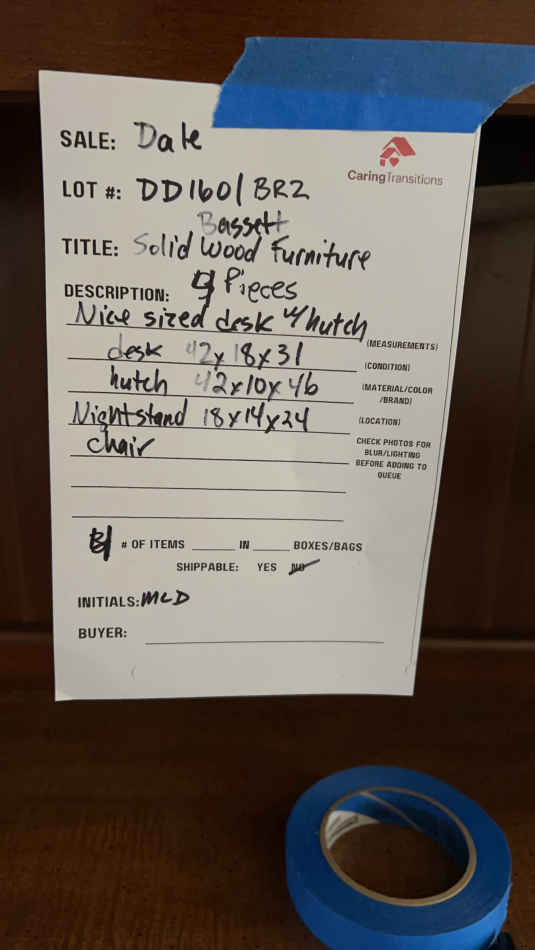 SALE: Dale
CaringTransitions
LOT #: DD1601 BR2
Bassett
TITLE: Solid Wood Furniture
DESCRIPTION: 4 Pieces
Nice sized desk w/ hutch
(MEASUREMENTS)
desk 42x18x31
(CONDITION)
hutch 42x10x46
(MATERIAL/COLOR
/BRAND)
Nightstand 18x14x24
(LOCATION)
chair
CHECK PHOTOS FOR
BLUR/LIGHTING
BEFORE ADDING TO
QUEUE
# OF ITEMS IN BOXES/BAGS
SHIPPABLE: YES NO
INITIALS: MLD
BUYER: